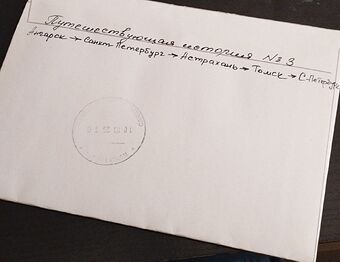 Путешествующая история № 3
Ангарск → Санкт-Петербург → Астрахань → Томск → С-Петербург